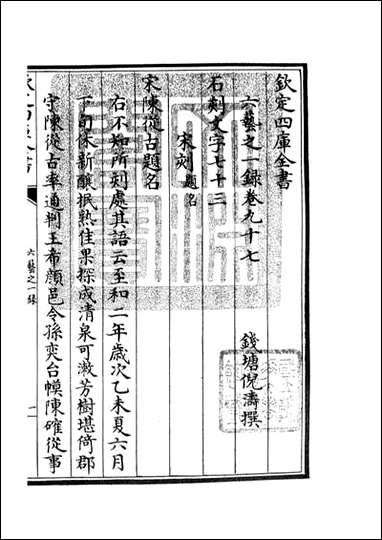 欽定四庫全書
六藝之一録卷九十七
錢塘倪濤撰
石刻文字七十三
宋刻題名
宋陳從古題名
右不知所刻處其語云至和二年歲次乙未夏六月
下旬休新釀抵熟佳果探成清泉可漱芳樹堪倚郡
守陳從古率通判王希顔邑令孫奕台幙陳確從事
六藝之一録